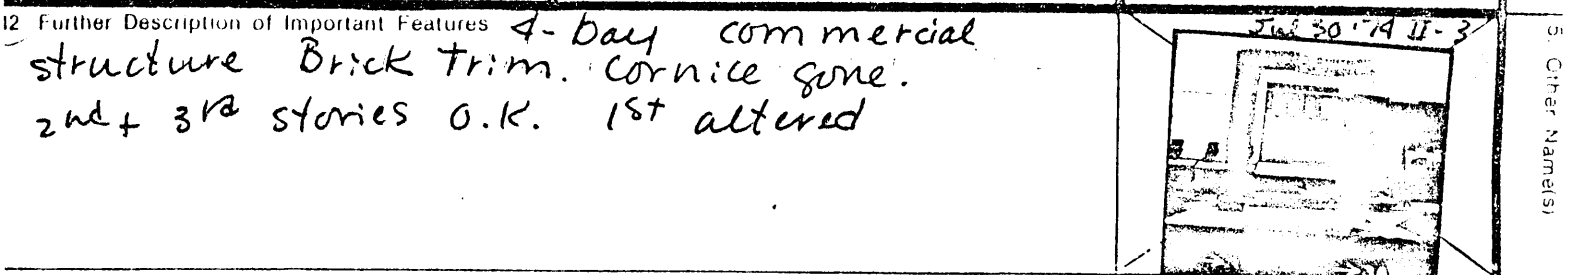 12 Further Description of Important Features 4-bay commercial
structure Brick trim. Cornice gone.
2nd + 3rd stories O.K. 1st altered
Jul 30 '74 II-3
5. Other Name(s)